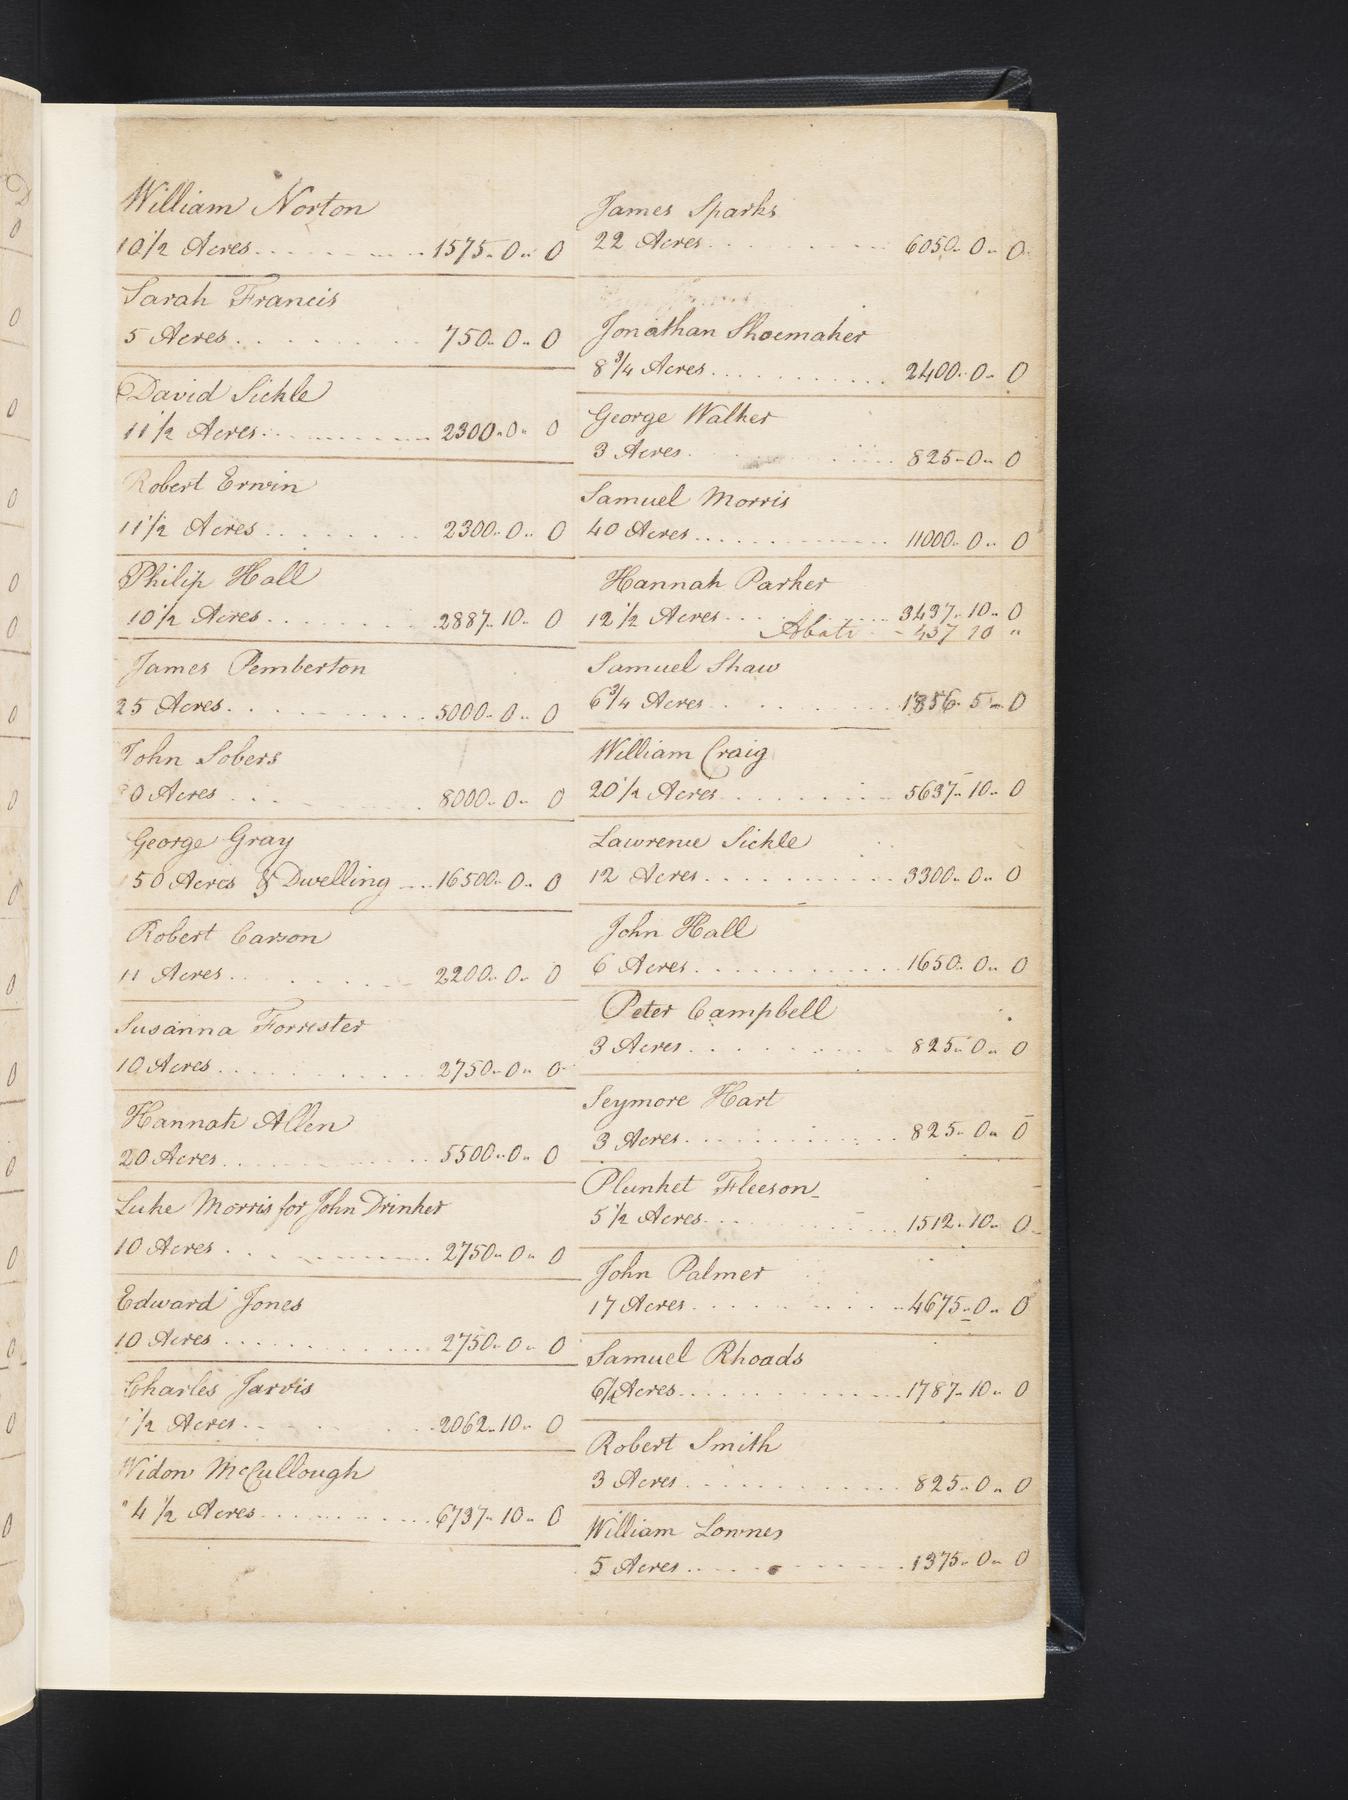 William Norton
10 1/2 Acres 1575 .. 0 .. 0
Sarah Francis
5 Acres 750 .. 0 .. 0
David Sickle
11 1/2 Acres 2300 .. 0 .. 0
Robert Erwin
11 1/2 Acres 2300 .. 0 .. 0
Philip Hall
10 1/2 Acres 2887 .. 10 .. 0
James Pemberton
25 Acres 5000 .. 0 .. 0
John Sobers
0 Acres 8000 .. 0 .. 0
George Gray
50 Acres & Dwelling 16500 .. 0 .. 0
Robert Carson
11 Acres 2200 .. 0 .. 0
Susanna Forrester
10 Acres 2750 .. 0 .. 0
Hannah Allen
20 Acres 5500 .. 0 .. 0
Luke Morris for John Drinker
10 Acres 2750 .. 0 .. 0
Edward Jones
10 Acres 2750 .. 0 .. 0
Charles Jarvis
1/2 Acres 2062 .. 10 .. 0
Widow McCullough
4 1/2 Acres 6737 .. 10 .. 0
James Sparks
22 Acres 6050 .. 0 .. 0
Jonathan Shoemaker
8 3/4 Acres 2400 .. 0 .. 0
George Walker
3 Acres 825 .. 0 .. 0
Samuel Morris
40 Acres 11000 .. 0 .. 0
Hannah Parker
12 1/2 Acres 3437 .. 10 .. 0
Abate 437 10 "
Samuel Shaw
6 3/4 Acres 1856 .. 5 .. 0
William Craig
20 1/2 Acres 5637 .. 10 .. 0
Lawrence Sickle
12 Acres 3300 .. 0 .. 0
John Hall
6 Acres 1650 .. 0 .. 0
Peter Campbell
3 Acres 825 .. 0 .. 0
Seymore Hart
3 Acres 825 .. 0 .. 0
Plunket Fleeson
5 1/2 Acres 1512 .. 10 .. 0
John Palmer
17 Acres 4675 .. 0 .. 0
Samuel Rhoads
6 1/2 Acres 1787 .. 10 .. 0
Robert Smith
3 Acres 825 .. 0 .. 0
William Lownes
5 Acres 1375 .. 0 .. 0